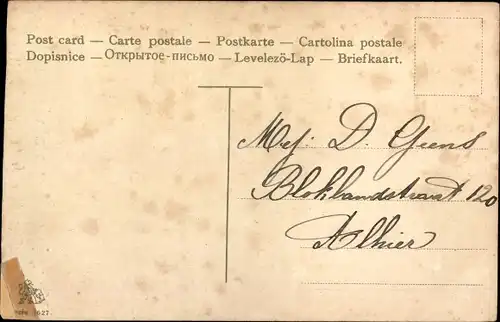 Post card — Carte postale — Postkarte — Cartolina postale
Dopisnice — Открытое-письмо — Levelező-Lap — Briefkaart.
Mej. D. Geens
Bloklandstraat 120
Alhier